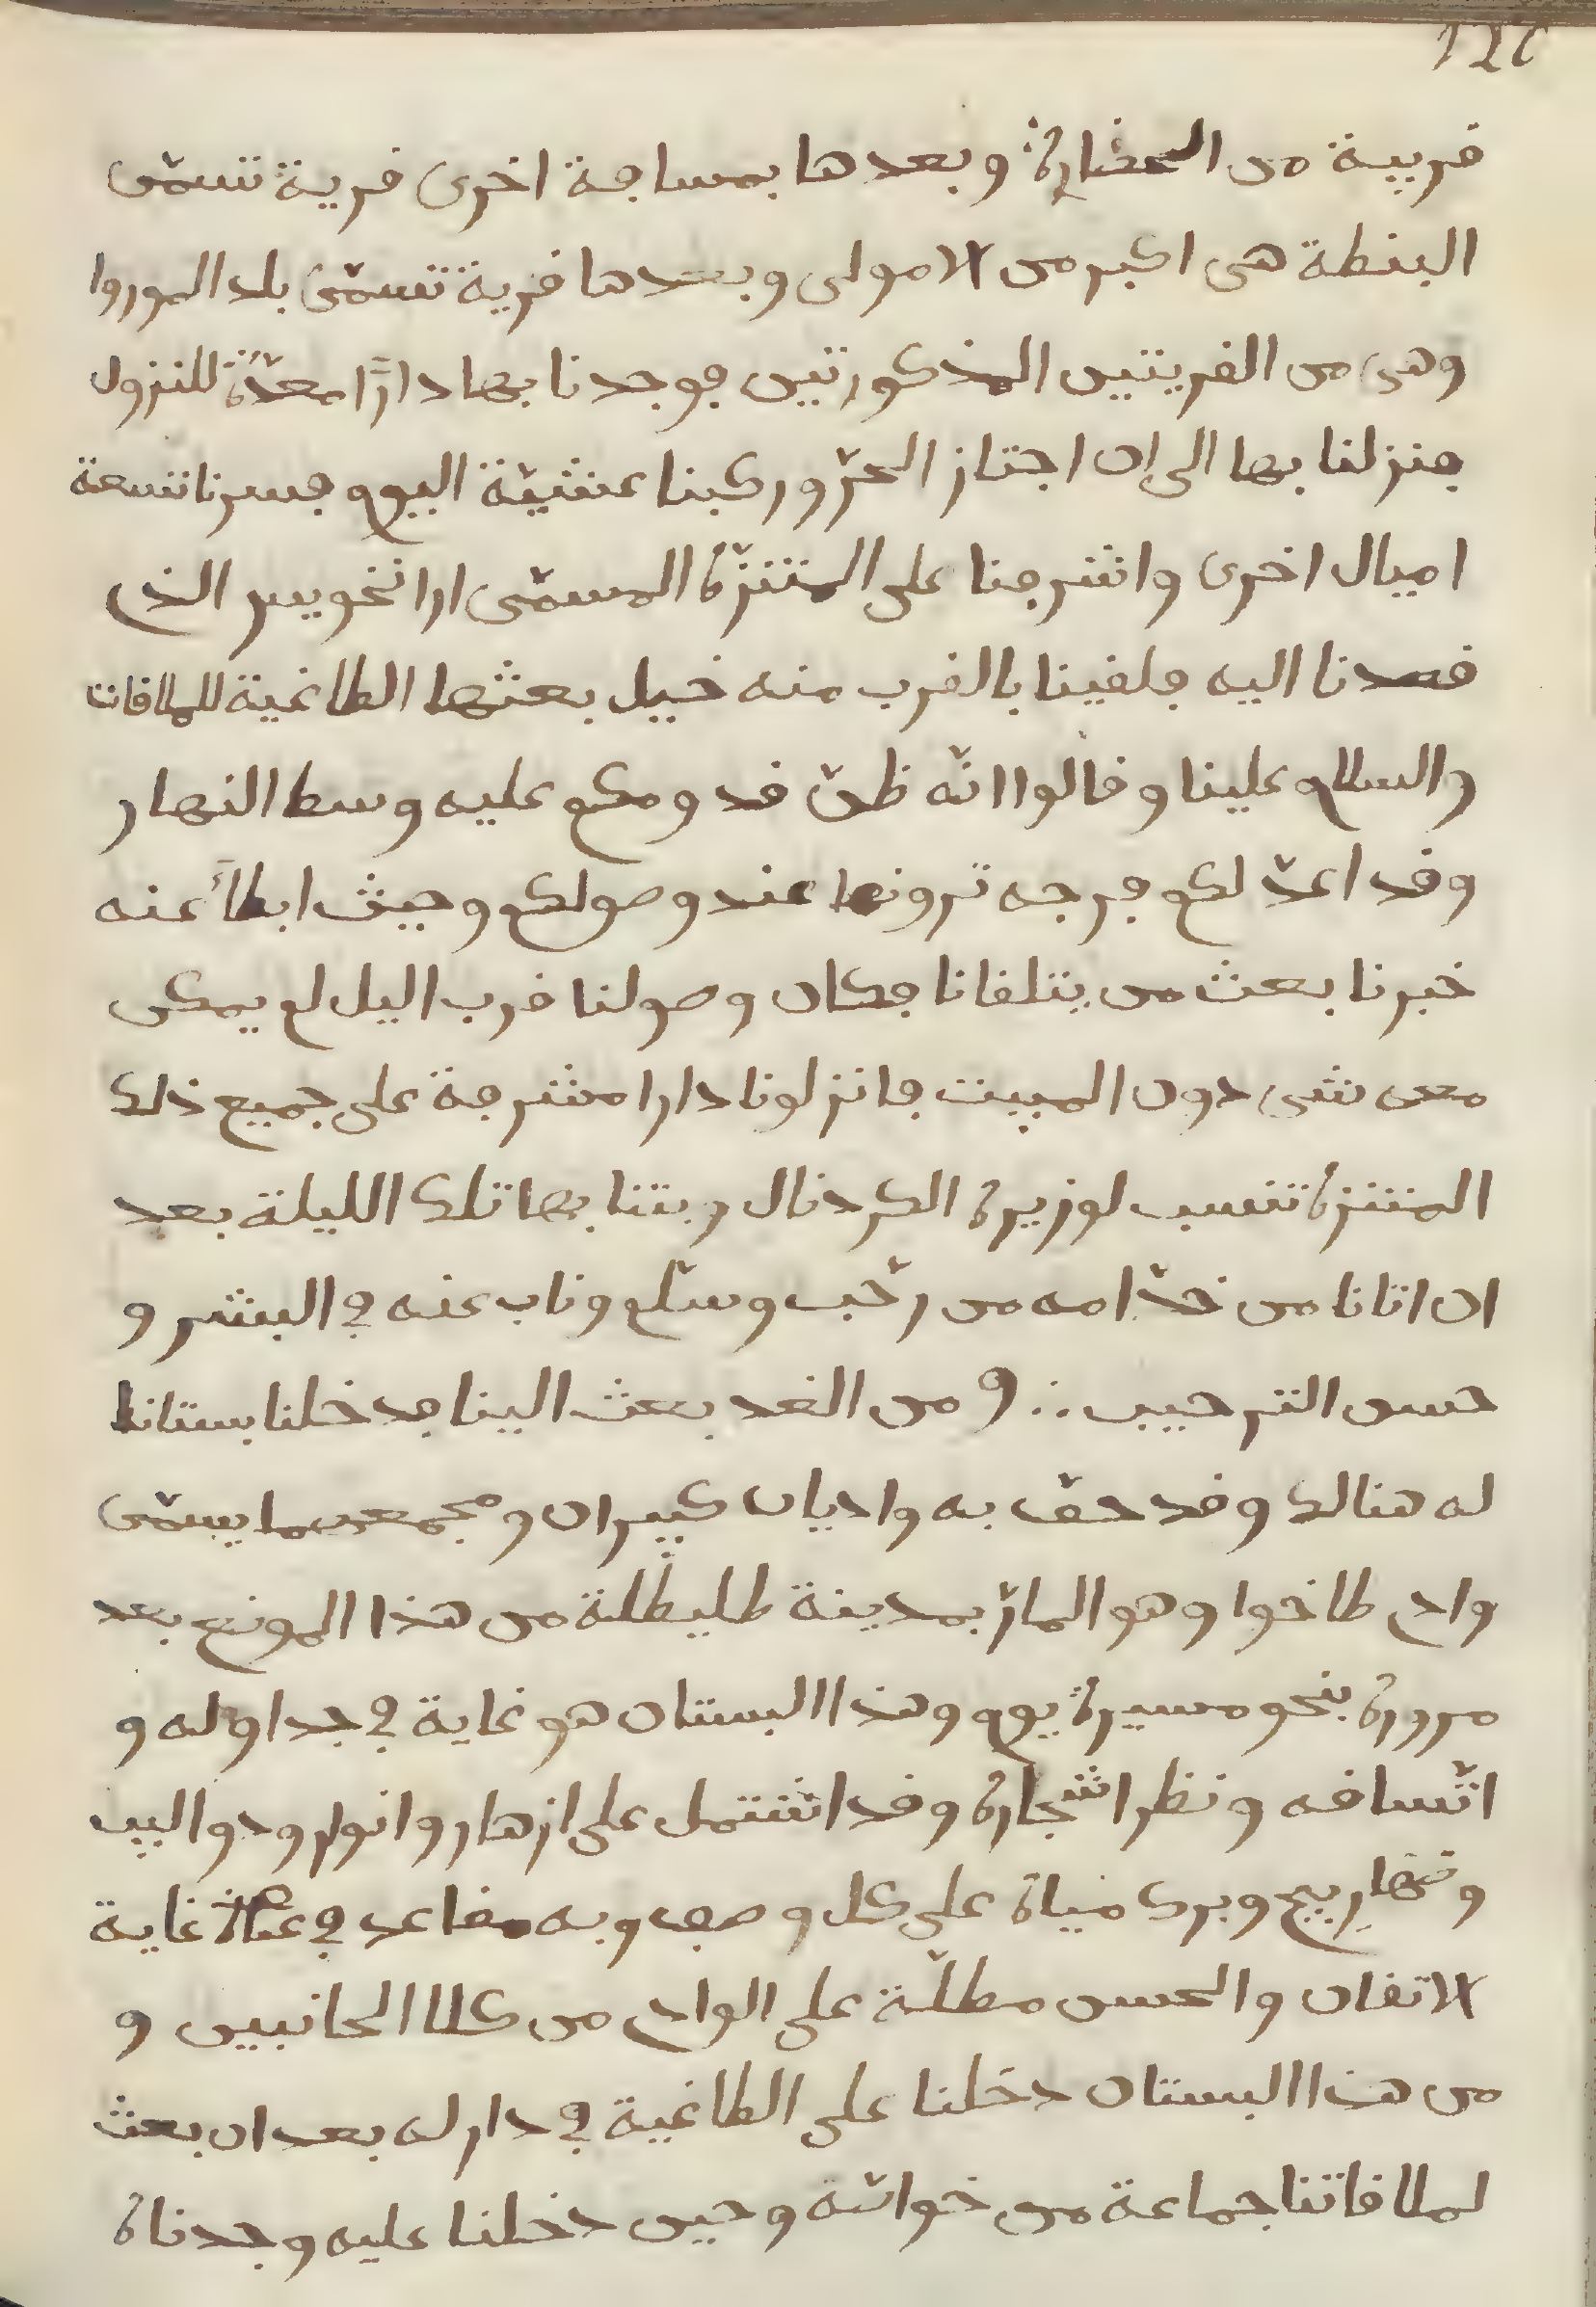 126
قريبة من الحضارة وبعدها بمسافة اخرى قرية تسمّى
البنطة هى اكبر من الامولى وبعدها قرية تسمّى بلد الموروا
وهى من القريتين المذكورتين فوجدنا بها دارًا معدّة للنزول
فنزلنا بها الى ان اجتاز الحرّ وركبنا عشيّة اليوم فسرنا تسعة
اميال اخرى واشرفنا على المتنزّه المسمّى ارانخويس الذى
قصدنا اليه فلقينا بالقرب منه خيل بعثها الطاغية للملاقات
والسلام علينا وقالوا انّه ظنّ قدومكم عليه وسط النهار
وقد اعدّ لكم فرجه ترونها عند وصولكم وحيث ابطأ عنه
خبرنا بعث من يتلقانا فكان وصولنا قرب اليل لم يمكن
معه شى دون المبيت فانزلونا دارا مشرفة على جميع ذلك
المتنزه تنسب لوزيره الكردنال وبتنا بها تلك الليلة بعد
ان اتانا من خدّامه من رحّب وسلّم وناب عنه في البشر و
حسن الترحيب ∴ ومن الغد بعث الينا فدخلنا بستانا
له هنالك وقد حفّ به واديان كبيران ومجمعهما يسمّى
وادى طاخوا وهو المارّ بمدينة طليطلة من هذا الموضع بعد
مروره بنحو مسيرة يوم وهذا البستان هو غاية في جداوله و
اتّساقه ونظر اشجاره وقد اشتمل على ازهار وانوار ودواليب
وتهاريج وبرك مياه على كل وصف وبه مقاعد في غاية
الاتقان والحسن مطلّة على الوادى من كلا الجانبين و
من هذا البستان دخلنا على الطاغية في دار له بعد ان بعث
لملاقاتنا جماعة من خواصّه وحين دخلنا عليه وجدناه